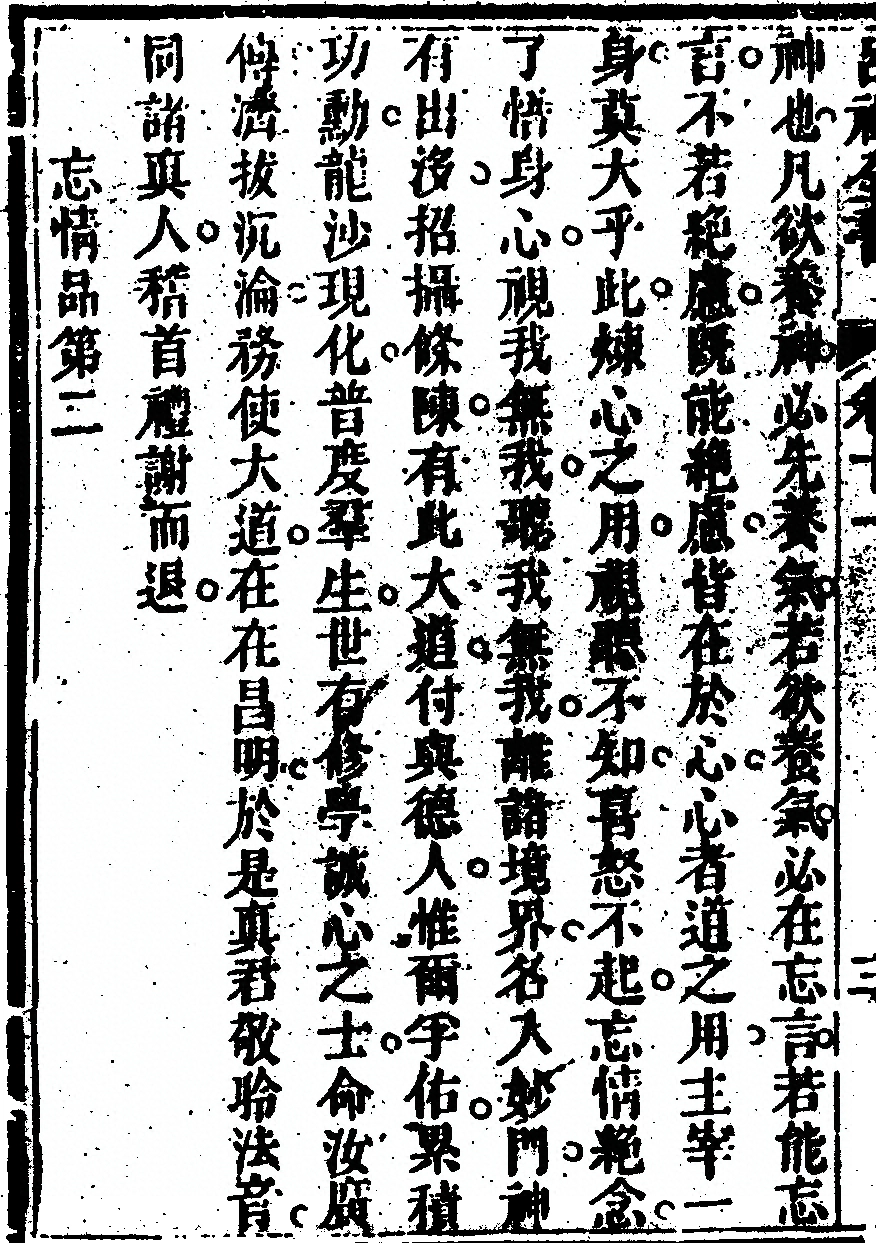 呂祖全書 卷十一 三
神也凡欲養神必先養氣若欲養氣必在忘言若能忘
言不若絶慮既能絶慮皆在於心心者道之用主宰一
身莫大乎此煉心之用視聽不知喜怒不起忘情絶念
了悟身心視我無我聽我無我離諸境界名入妙門神
有出沒招攝條陳有此大道付與德人惟爾孚佑累積
功勳龍沙現化普度羣生世有修學誠心之士命汝廣
傳濟拔沉淪務使大道在在昌明於是真君敬聆法音
同諸真人稽首禮謝而退
忘情品第二